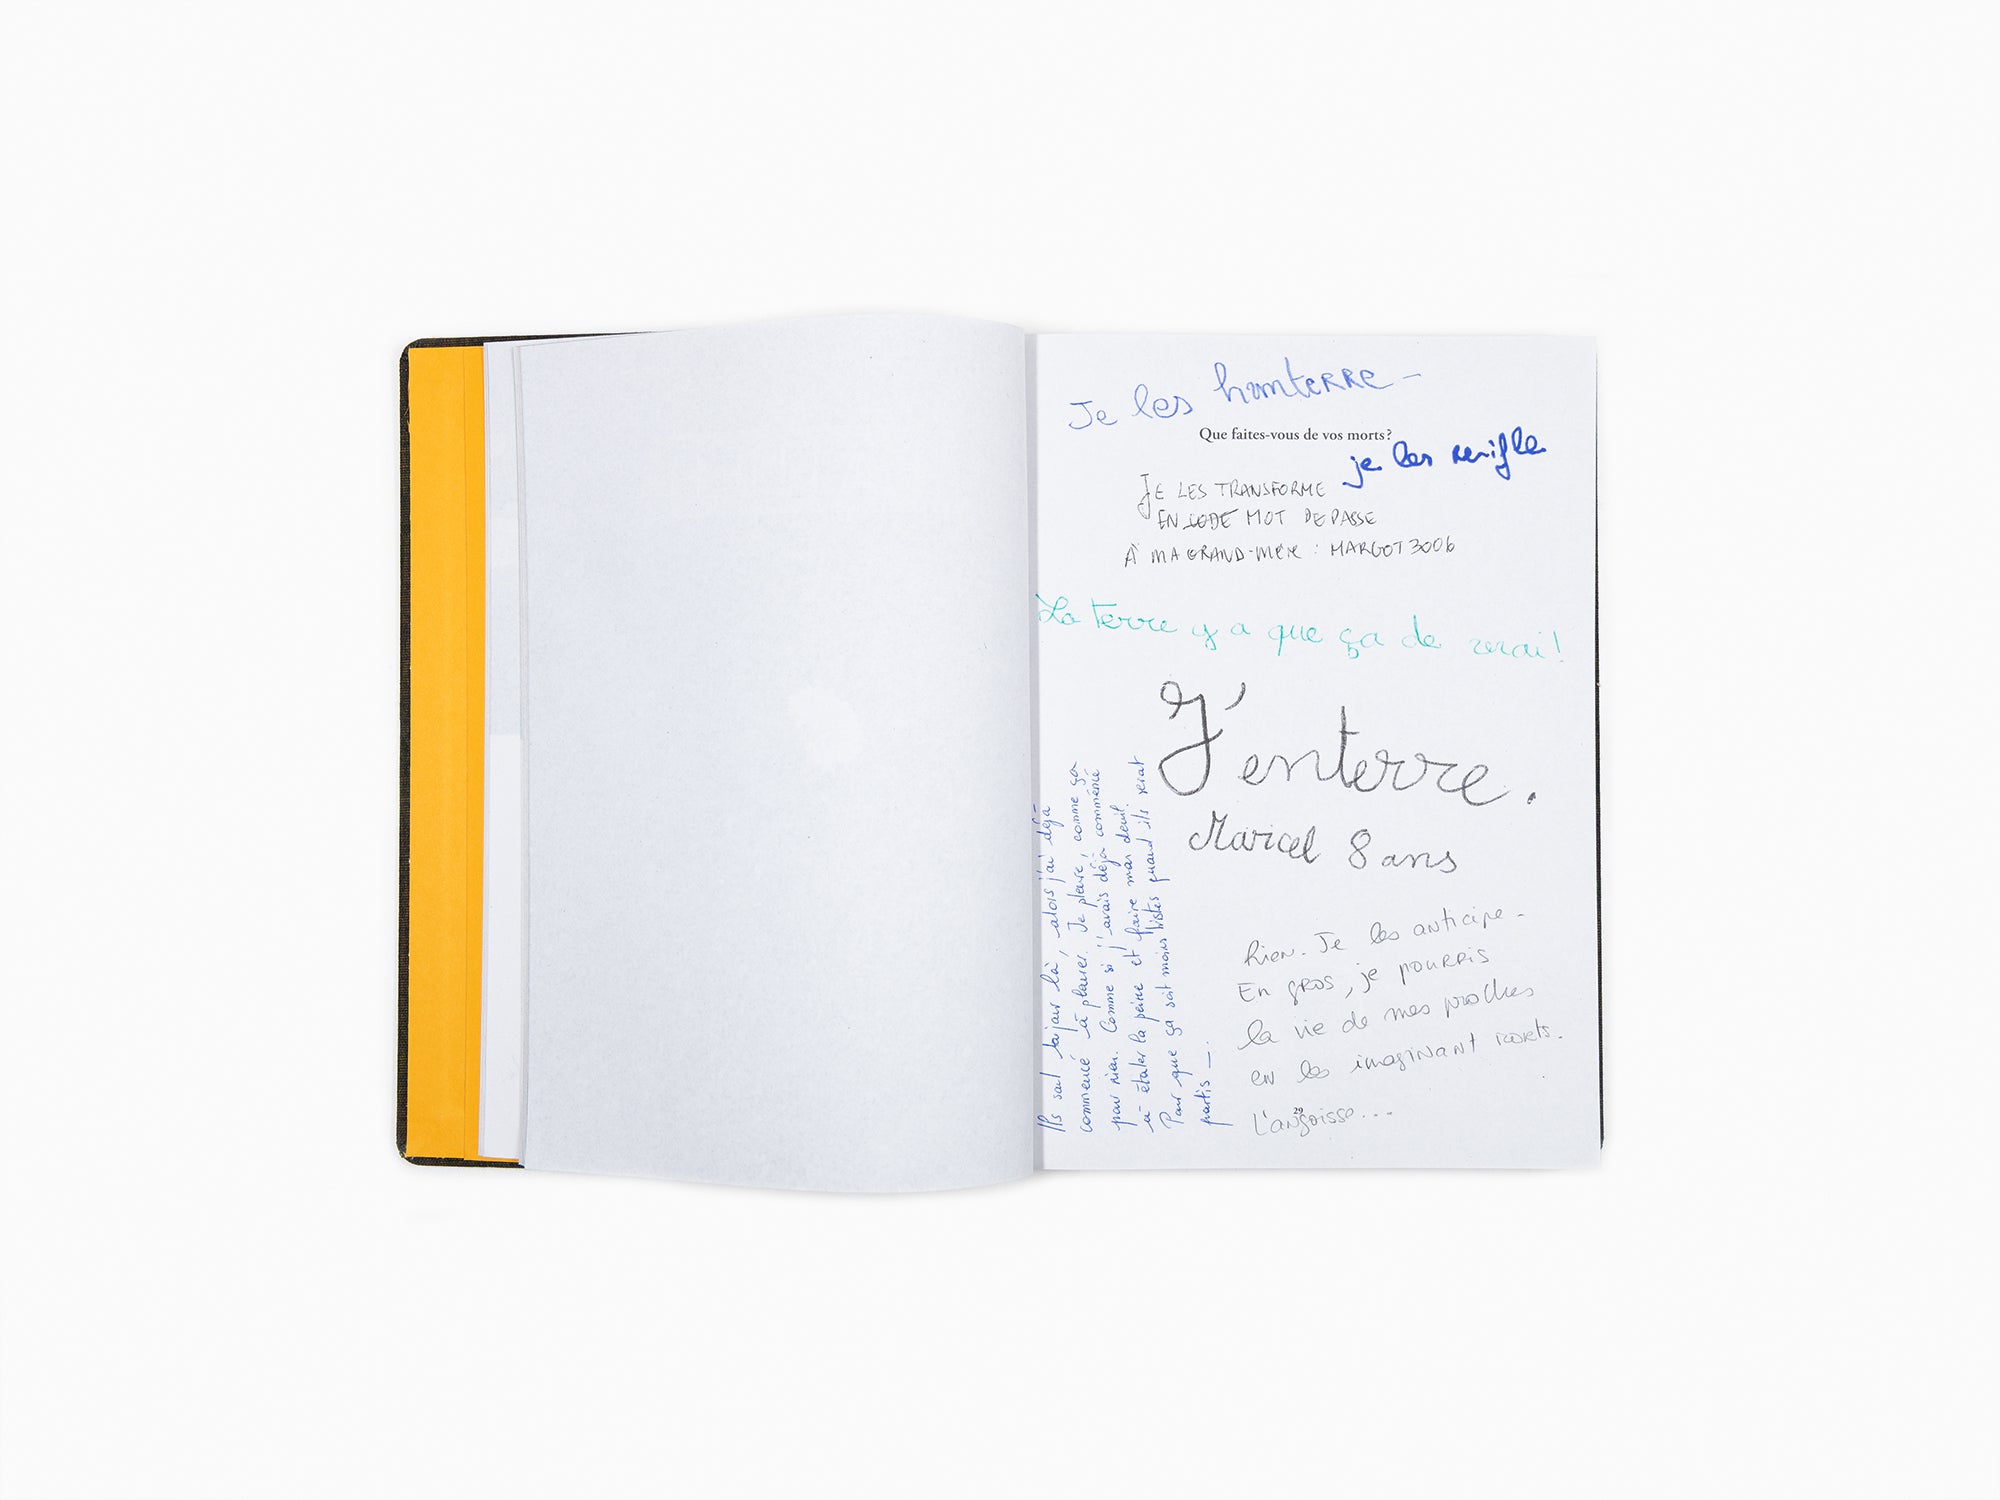 Je les honterre –
Que faites-vous de vos morts?
je les renifle
JE LES TRANSFORME
EN CODE MOT DE PASSE
À MA GRAND-MÈRE : MARGOT3006
La terre y a que ça de vrai!
J'enterre.
Marcel 8 ans
Ils sont toujours là, alors j'ai déjà
commencé à pleurer. Je pleure, comme ça
pour rien. Comme si j'avais déjà commencé
à étaler la peine et faire mon deuil.
Pour que ça soit moins tristes quand ils serat
partis —.
Rien. Je les anticipe -
En gros, je pourris
la vie de mes proches
en les imaginant morts.
L'angoisse...
29